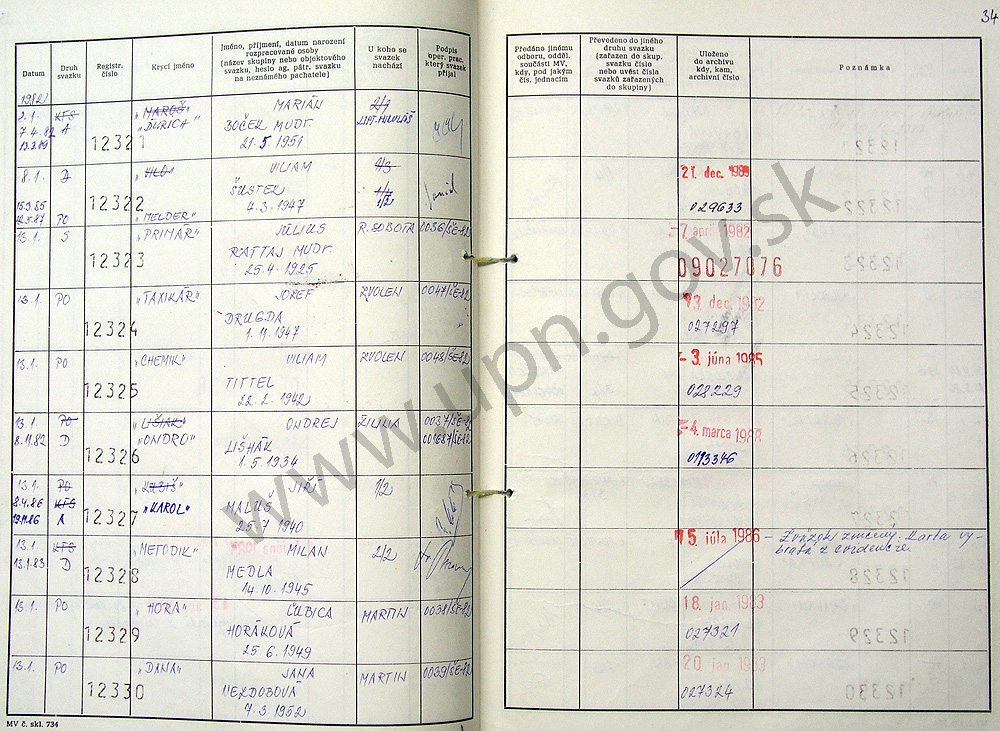 34
Datum
Druh svazku
Registr. číslo
Krycí jméno
Jméno, příjmení, datum narození
rozpracované osoby
(název skupiny nebo objektového
svazku, heslo ag. pátr. svazku
na neznámého pachatele)
U koho se
svazek
nachází
Podpis
oper. prac.,
který svazek
přijal
Předáno jinému
odboru, odděl.
součásti MV,
kdy, pod jakým
čís. jednacím
Převedeno do jiného
druhu svazku
(zařazen do skup.
svazku číslo
nebo uvést čísla
svazků zařazených
do skupiny)
Uloženo
do archivu
kdy, kam,
archivní číslo
Poznámka
1982
2.1. KFS „MAROŠ" MARIÁN 2/1
7.4.82 A „ĎURICA" BOČEK MUDr. LIPT. MIKULÁŠ
12321 21.5 1951
8.1. D VILIAM 4/3 21. dec. 1989
12322 ŠUSTEK 1/2
PO „MELDER" 4.3.1947 029633
13.1. S „PRIMÁR" JÚLIUS R. SOBOTA 0036/ŠE-82 - 7. apríl 1982
12323 RATTAJ MUDr. 09027076
25.4.1925
13.1. PO „TAXIKÁR" JOZEF ZVOLEN 0047/ŠE-82 13. dec. 1982
12324 DRUGDA 027297
1.11.1947
13.1. PO „CHEMIK" VILIAM ZVOLEN 0048/ŠE-82 - 3. júna 1985
12325 TITTEL 028229
22.2.1942
13.1. PO „LIŠIAK" ONDREJ ŽILINA 0037/ŠE-82 - 4. marca 1988
8.11.82 D „ONDRO" LIŠHÁK
12326 1.5.1934
13.1. PO JIŘÍ 1/2
8.4.86 KFS „KAROL" MALUŠ
A 12327 25.7 1940
13.1. KFS „METODIK" MILAN 2/2 15. júla 1986 - Zväzok zničený. Karta vy-
13.1.83 D MEDLA bratá z evidencie.
12328 14.10.1945
13.1. PO „HORA" ĽUBICA MARTIN 0038/ŠE-82 18. jan. 1983
12329 HORÁKOVÁ 027321
25.6.1949
13.1. PO „DANA" JANA MARTIN 0039/ŠE-82 20. jan. 1983
12330 NEZDOBOVÁ 027324
7.3.1952
MV č. skl. 734
www.upn.gov.sk